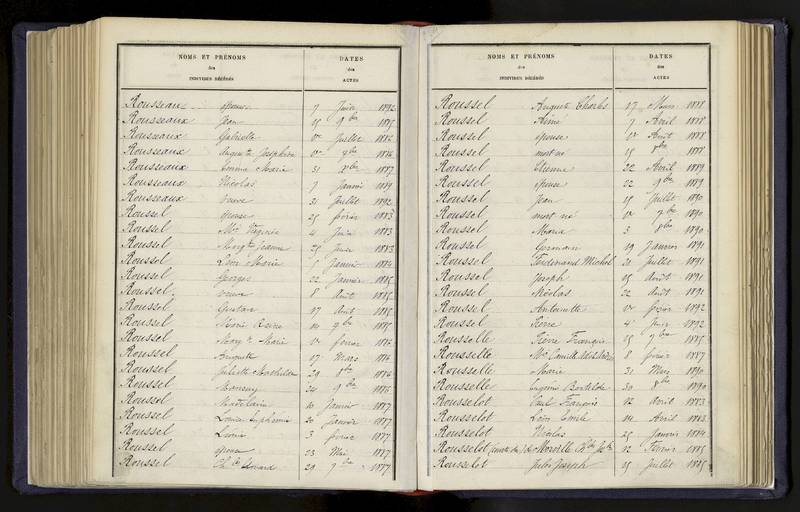 NOMS ET PRÉNOMS
des
INDIVIDUS DÉCÉDÉS
DATES
des
ACTES
Rousseau épouse 7 Juin 1892
Rousseaux Jean 15 9bre 1885
Rousseaux Gabrielle Juillet
Rousseaux Joséphine
Rousseaux Emma Marie 31 1887
Rousseaux Nicolas 7 Janvier 1889
Rousseaux veuve 31 Juillet 1892
Roussel épouse 25 février 1883
Roussel Virginie 4 Juin 1883
Roussel Jeanne 25 Juin 1883
Roussel Léon Marie Janvier 1884
Roussel Georges 22 Janvier 1885
Roussel veuve 8 Août 1885
Roussel Gustave 17 Août 1885
Roussel Marie Reine 14 9bre 1885
Roussel Marie février 1886
Roussel Auguste 17 Mars 1886
Roussel Juliette Mathilde 29 1886
Roussel 24 9bre 1886
Roussel 10 Janvier 1887
Roussel Louise 20 Janvier 1887
Roussel 3 février 1887
Roussel épouse 23 Mai 1887
Roussel 29 1887
NOMS ET PRÉNOMS
des
INDIVIDUS DÉCÉDÉS
DATES
des
ACTES
Roussel Auguste Charles 17 Mars 1888
Roussel Aimé 7 Avril 1888
Roussel épouse Août 1888
Roussel mort né 15 8bre 1888
Roussel Etienne 22 Avril 1889
Roussel épouse 22 9bre 1889
Roussel Jean 15 Juillet 1890
Roussel mort né 1890
Roussel Maria 3 8bre 1890
Roussel Germain 19 Janvier 1891
Roussel Ferdinand Michel 21 Juillet 1891
Roussel Joseph 15 Août 1891
Roussel Nicolas 22 Août 1891
Roussel Antoinette février 1892
Roussel 4 Juin 1892
Rousselle Pierre François 15 9bre 1885
Rousselle Camille 8 février 1887
Rousselle Marie 31 Mars 1890
Rousselle Eugénie 30 8bre 1890
Rousselot Paul François 12 Avril 1883
Rousselot Léon Emile 14 Avril 1883
Rousselot Nicolas 25 Janvier 1884
Rousselot de Morville 12 Février 1885
Rousselot Jules Joseph 15 Juillet 1885